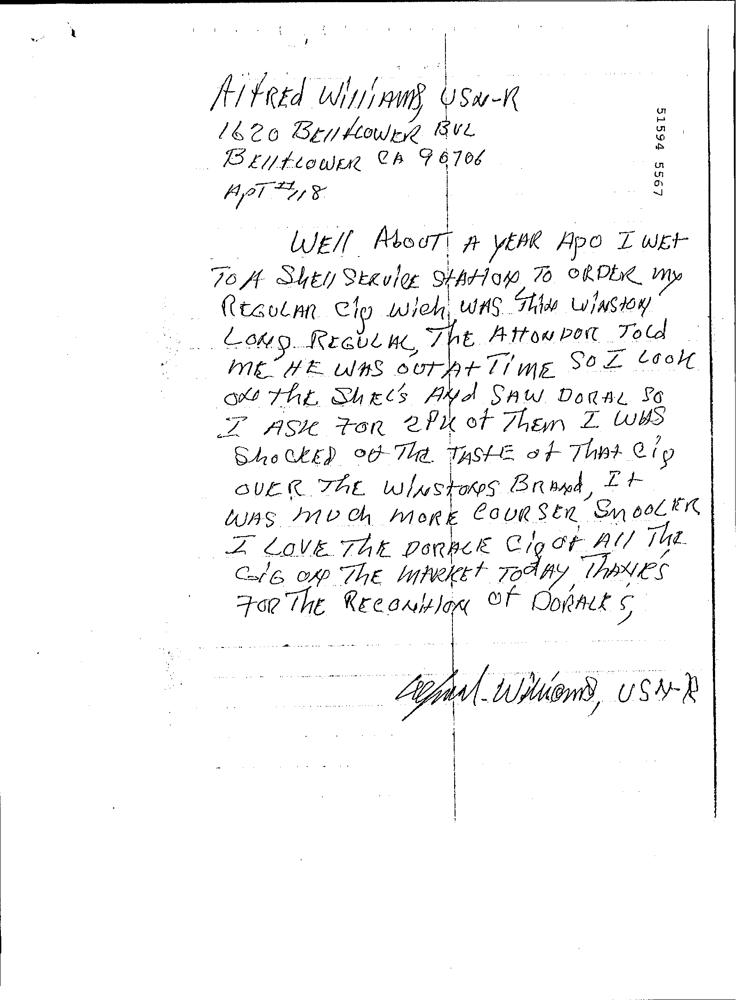 Alfred Williams, USN-R
1620 Bellflower BVL
Bellflower CA 90706
Apt #118
51594 5567
Well About A year Ago I wet
To A Shell Service Station, To order my
Regular Cig wich was this Winston
Long Regular, The Attondor Told
me He was out At Time So I Look
on the Shel's And saw Doral So
I Ask for 2PK of Them I was
Shocked of The Taste of That Cig
over The Winstons Brand, It
was much more Courser Smooler
I Love The Dorale Cig of All The
Cig on The Market Today, Thanks
For The Reconition of Dorales,
Williams, USN-R